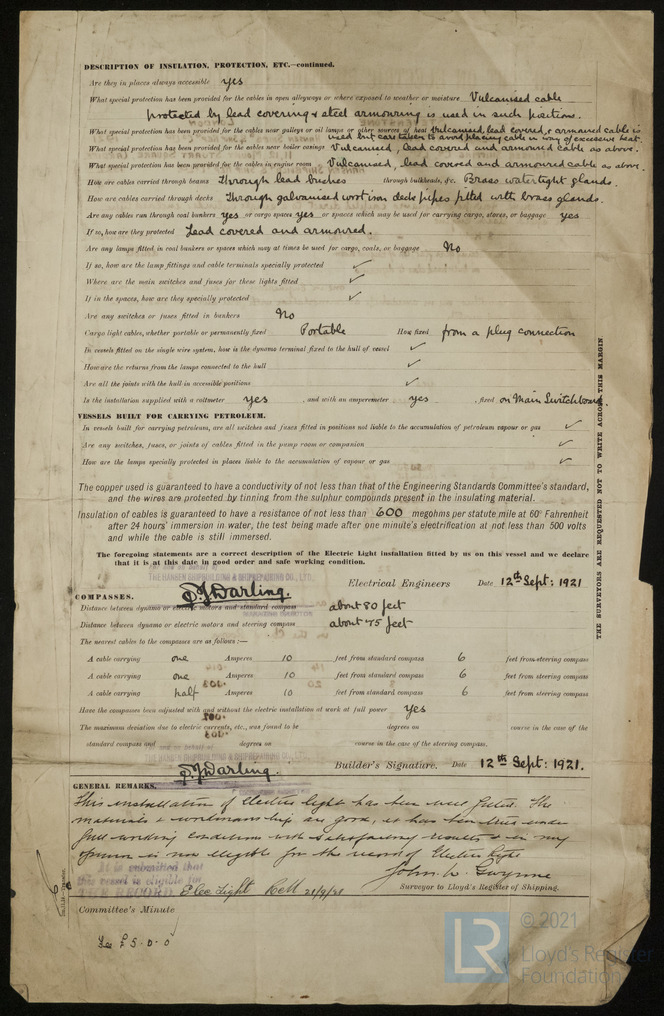 DESCRIPTION OF INSULATION, PROTECTION, ETC.—continued.
Are they in places always accessible yes
What special protection has been provided for the cables in open alleyways or where exposed to weather or moisture Vulcanised cable
protected by lead covering & steel armouring is used in such positions.
What special protection has been provided for the cables near galleys or oil lamps or other sources of heat Vulcanised, lead covered & armoured cable is
used but care taken to avoid placing cable in way of excessive heat.
What special protection has been provided for the cables near boiler casings Vulcanised, lead covered and armoured cable as above.
What special protection has been provided for the cables in engine room Vulcanised, lead covered and armoured cable as above.
How are cables carried through beams Through lead bushes through bulkheads, &c. Brass watertight glands.
How are cables carried through decks Through galvanised wort iron deck pipes fitted with brass glands.
Are any cables run through coal bunkers yes or cargo spaces yes or spaces which may be used for carrying cargo, stores, or baggage yes
If so, how are they protected Lead covered and armoured.
Are any lamps fitted in coal bunkers or spaces which may at times be used for cargo, coals, or baggage No
If so, how are the lamp fittings and cable terminals specially protected ✓
Where are the main switches and fuses for these lights fitted ✓
If in the spaces, how are they specially protected ✓
Are any switches or fuses fitted in bunkers No
Cargo light cables, whether portable or permanently fixed Portable How fixed from a plug connection
In vessels fitted on the single wire system, how is the dynamo terminal fixed to the hull of vessel ✓
How are the returns from the lamps connected to the hull ✓
Are all the joints with the hull in accessible positions ✓
Is the installation supplied with a voltmeter yes , and with an amperemeter yes , fixed on Main Switchboard.
VESSELS BUILT FOR CARRYING PETROLEUM.
In vessels built for carrying petroleum, are all switches and fuses fitted in positions not liable to the accumulation of petroleum vapour or gas ✓
Are any switches, fuses, or joints of cables fitted in the pump room or companion ✓
How are the lamps specially protected in places liable to the accumulation of vapour or gas ✓
The copper used is guaranteed to have a conductivity of not less than that of the Engineering Standards Committee's standard,
and the wires are protected by tinning from the sulphur compounds present in the insulating material.
Insulation of cables is guaranteed to have a resistance of not less than 600 megohms per statute mile at 60° Fahrenheit
after 24 hours' immersion in water, the test being made after one minute's electrification at not less than 500 volts
and while the cable is still immersed.
The foregoing statements are a correct description of the Electric Light installation fitted by us on this vessel and we declare
that it is at this date in good order and safe working condition.
THE HANSEN SHIPBUILDING & SHIPREPAIRING CO., LTD.
Electrical Engineers Date 12th Sept: 1921
COMPASSES. Darling.
Distance between dynamo or electric motors and standard compass about 80 feet
Distance between dynamo or electric motors and steering compass about 75 feet
The nearest cables to the compasses are as follows:—
A cable carrying one Amperes 10 feet from standard compass 6 feet from steering compass
A cable carrying one Amperes 10 feet from standard compass 6 feet from steering compass
A cable carrying half Amperes 10 feet from standard compass 6 feet from steering compass
Have the compasses been adjusted with and without the electric installation at work at full power yes
The maximum deviation due to electric currents, etc., was found to be degrees on course in the case of the
standard compass and degrees on course in the case of the steering compass.
THE HANSEN SHIPBUILDING & SHIPREPAIRING CO., LTD.
Darling. Builder's Signature. Date 12th Sept: 1921.
GENERAL REMARKS.
This installation of electric light has been well fitted. The
materials & workmanship are good, it has been tried under
full working conditions with satisfactory results & in my
opinion is now eligible for the record of Electric Light
It is submitted that
this vessel is eligible for
THE RECORD Elec Light
21/9/21
John W. Gwynne
Surveyor to Lloyd's Register of Shipping.
Committee's Minute
Fee £5-0-0
THE SURVEYORS ARE REQUESTED NOT TO WRITE ACROSS THIS MARGIN
LR © 2021
Lloyd's Register
Foundation